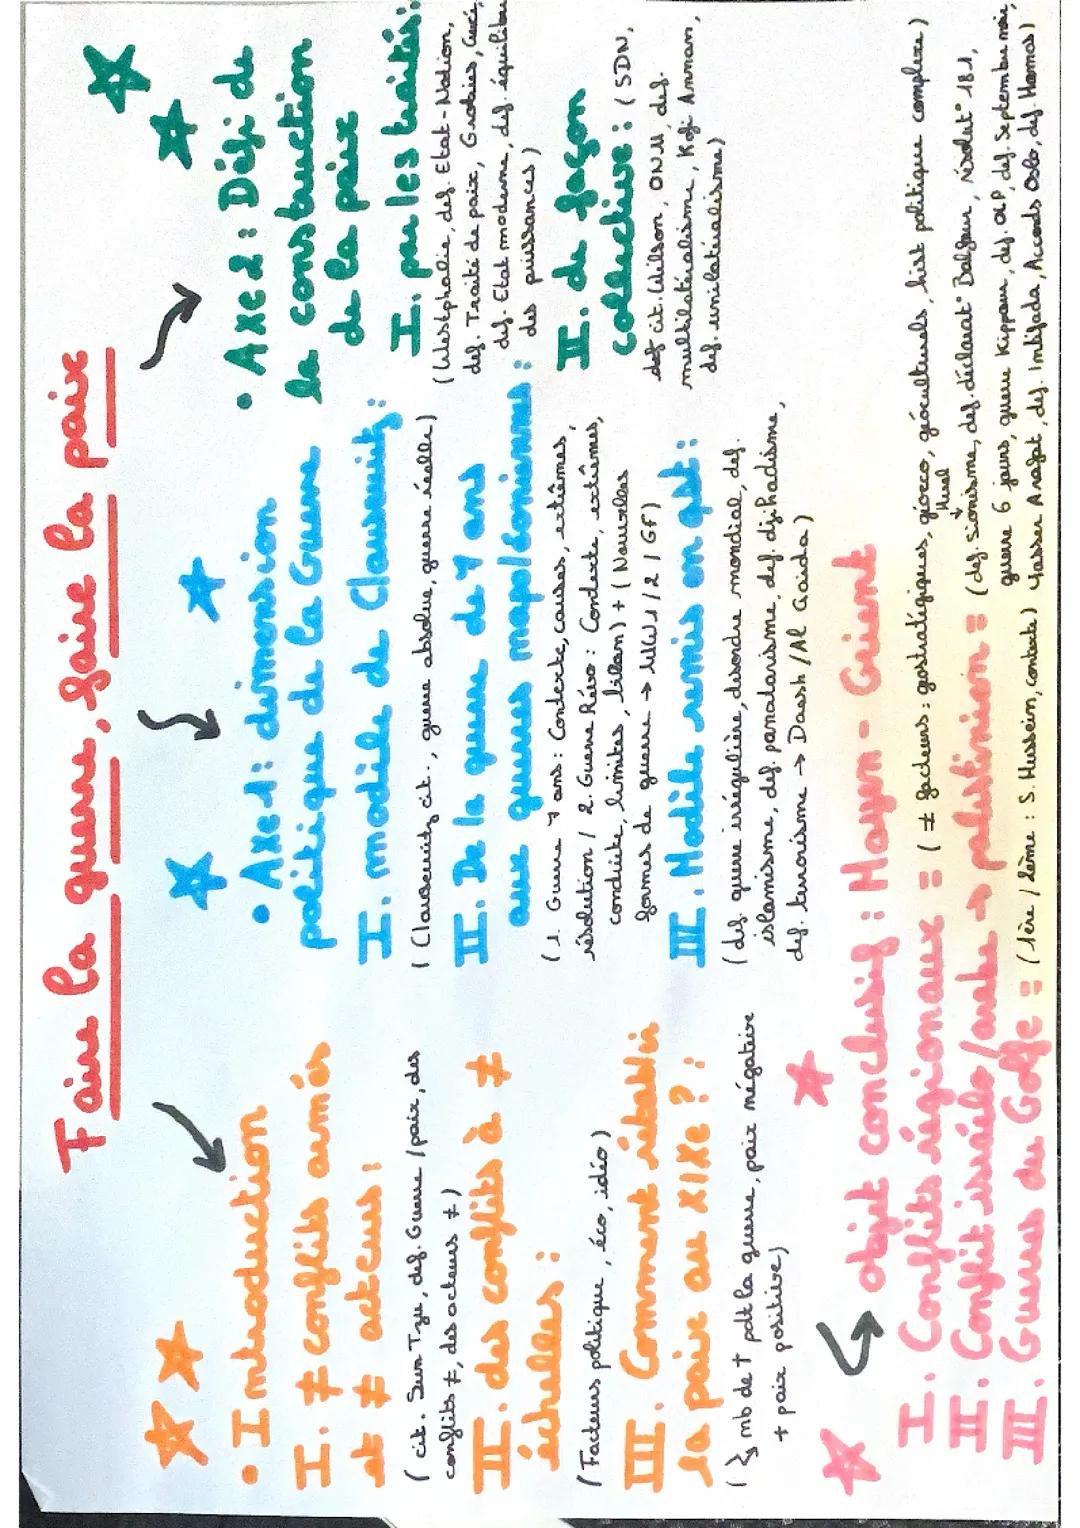 Faire la guerre, faire la paix
• Introduction
I. ≠ conflits armés
et ≠ acteurs :
( cit. Sun Tzu, def. Guerre / paix, des
conflits ≠, des acteurs ≠ )
II. des conflits à ≠
échelles :
( Facteurs politique, éco, idéo )
III. Comment établir
la paix au XIXe ? :
( ↘ nb de † pdt la guerre, paix négative
+ paix positive)
• Axe 1 : dimension
politique de la Guerre
I. modèle de Clausewitz :
( Clausewitz cit., guerre absolue, guerre réelle )
II. De la guerre de 7 ans
aux guerres napoléoniennes :
( 1. Guerre 7 ans : Contexte, causes, extrêmes,
résolution / 2. Guerre Révo : Contexte, extrêmes,
conduite, limites, bilan) + ( Nouvelles
formes de guerre → WW1 / 2 / GF)
III. Modèle remis en qst :
( def. guerre irrégulière, désordre mondial, def.
islamisme, def. panarabisme, def. djihadisme,
def. terrorisme → Daesh / Al Qaida )
• Axe 2 : Défi de
la construction
de la paix
I. par les traités :
(Westphalie, def. Etat-Nation,
def. Traité de paix, Grotius, Crucé,
def. Etat moderne, def. équilibre
des puissances )
II. de façon
collective : ( SDN,
def cit. Wilson, ONU, def.
multilatéralisme, Kofi Annan,
def. unilatéralisme)
objet conclusif : Moyen-Orient
I. Conflits régionaux = ( ≠ facteurs : gostratégiques, géoéco, géoculturels, hist politique complexe )
II. Conflit israélo/arabe → palestinien = (def. sionisme, def. déclarat° Balfour, résolut° 181,
Herzl
guerre 6 jours, guerre Kippour, def. OLP, def. Septembre noir,
III. Guerres du Golfe = ( 1ère / 2ème : S. Hussein, contexte) Yasser Arafat, def. Intifada, Accords Oslo, def. Hamas )